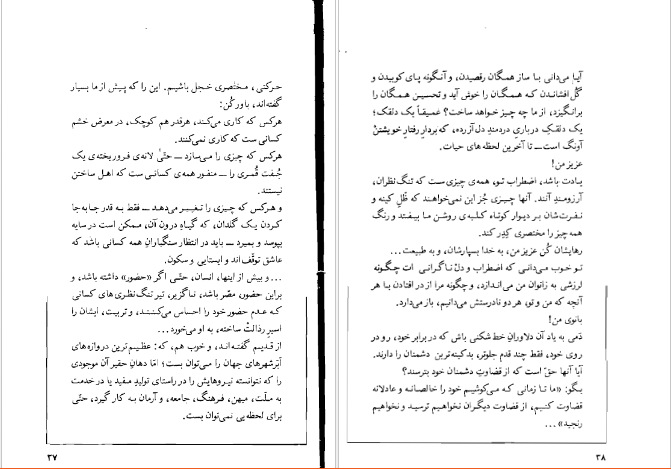 حرکتی، مختصری خجل باشیم. این را که پیش از ما بسیار
گفته‌اند، باور کُن:
هرکس که کاری می‌کند، هرقدر هم کوچک، در معرض خشم
کسانی ست که کاری نمی‌کنند.
هرکس که چیزی را می‌سازد — حتّیٰ لانه‌ی فروریخته‌ی یک
جُفت قُمری را — منفور همه‌ی کسانی ست که اهل ساختن
نیستند.
و هرکس که چیزی را تغییر می‌دهد — فقط به قدر جابه‌جا
کردن یک گلدان، که گیاه درون آن، ممکن است در سایه
بپوسد و بمیرد — باید در انتظار سنگبارانِ همه کسانی باشد که
عاشق توقّف‌اند و ایستایی و سکون.
... و بیش از اینها، انسان، حتّی اگر «حضور» داشته باشد، و
براین حضور، مصّر باشد، ناگزیر، تیر تنگ‌نظری‌های کسانی
که عدم حضور خود را احساس می‌کنند، و تربیت، ایشان را
اسیر رذالت ساخته، به او می‌خورد...
از قدیم گفته‌اند، و خوب هم، که: عظیم‌ترین دروازه‌های
اَبَرشهرهای جهان را می‌توان بست؛ امّا دهانِ حقیر آن موجودی
را که نتوانسته نیروهایش را در راستای تولیدِ مفید یا در خدمت
به ملّت، میهن، فرهنگ، جامعه، و آرمان به کار گیرد، حتّی
برای لحظه‌یی نمی‌توان بست.
۳۷
آیا می‌دانی با ساز همگان رقصیدن، و آنگونه پای کوبیدن و
گُل افشاندن که همگان را خوش آید و تحسین همگان را
برانگیزد، از ما چه چیز خواهد ساخت؟ عمیقاً یک دلقک؛
یک دلقک درباریِ دردمندِ دل‌آزرده، که بردارِ رفتارِ خویشتنْ
آونگ است— تا آخرین لحظه‌های حیات.
عزیز من!
یادت باشد، اضطراب تو، همه‌ی چیزی‌ست که تنگ‌نظران،
آرزومندِ آنند. آنها چیزی جُز این نمی‌خواهند که ظّلِ کینه و
نفرت‌شان بر دیوار کوتاه کلبه‌ی روشن ما بیفتد و رنگ
همه چیز را مختصری کِدِر کند.
رهایشان کُن عزیز من، به خدا بسپارشان، و به طبیعت...
تو خوب می‌دانی که اضطراب و دلْ نگرانی ات چگونه
لرزشی به زانوان من می‌اندازد، و چگونه مرا از در افتادن با هر
آنچه که من و تو، هر دو نادرستش می‌دانیم، باز می‌دارد.
بانوی من!
دَمی به یاد آن دلاورانِ خط‌شکنی باش که در برابر خود، رو در
روی خود، فقط چند قدم جلوتر، بدکینه‌ترین دشمنان را دارند.
آیا آنها حقّ است که از قضاوت دشمنان خود بترسند؟
بگو: «ما تا زمانی که می‌کوشیم خود را خالصانه و عادلانه
قضاوت کنیم، از قضاوت دیگران نخواهیم ترسید و نخواهیم
رنجید»...
۳۸